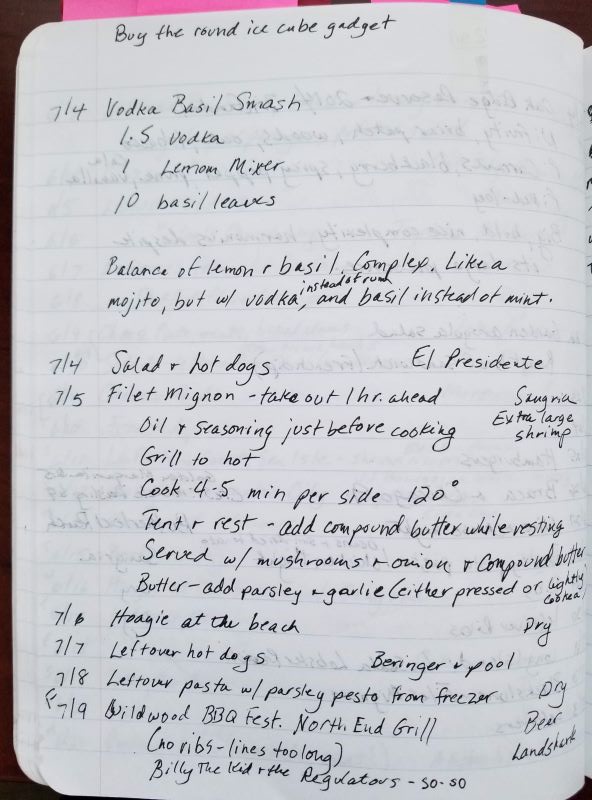 Buy the round ice cube gadget
7/4 Vodka Basil Smash
1.5 vodka
1 Lemom Mixer
10 basil leaves
Balance of lemon & basil. Complex. Like a
mojito, but w/ vodka, instead of rum and basil instead of mint.
7/4 Salad & hot dogs El Presidente
7/5 Filet Mignon - take out 1 hr. ahead Sangria
Oil & Seasoning just before cooking Extra large shrimp
Grill to hot
Cook 4-5 min per side 120°
Tent & rest - add compound butter while resting
Served w/ mushrooms & onion & Compound butter
Butter - add parsley & garlic (either pressed or lightly cooked)
7/6 Hoagie at the beach Dry
7/7 Leftover hot dogs Beringer & pool
7/8 Leftover pasta w/ parsley pesto from freezer Dry
F 7/9 Wildwood BBQ Fest. North End Grill Beer
(no ribs - lines too long) Landshark
Billy The Kid & the Regulators - so-so